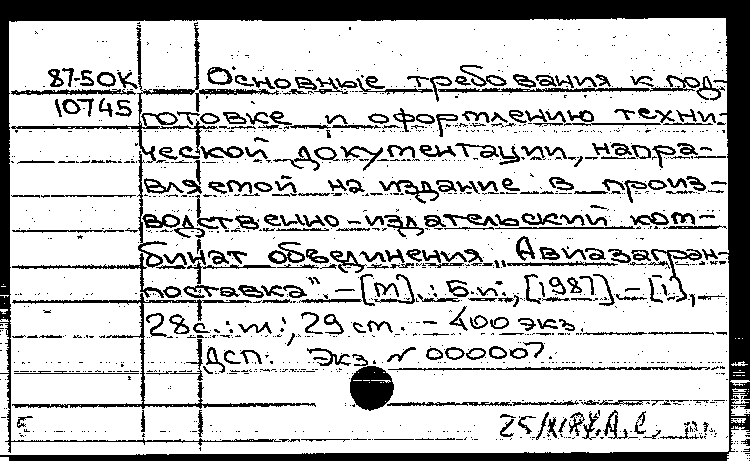 87-50К Основные требования к под-
10745 готовке и оформлению техни-
ческой документации, напра-
вляемой на издание в произ-
водственно-издательский ком-
бинат объединения „Авиазагран-
поставка". – [М].: Б.и., [1987]. – [1],
28 с.: ил., 29 см. – 400 экз.
ДСП. Экз. № 000007.